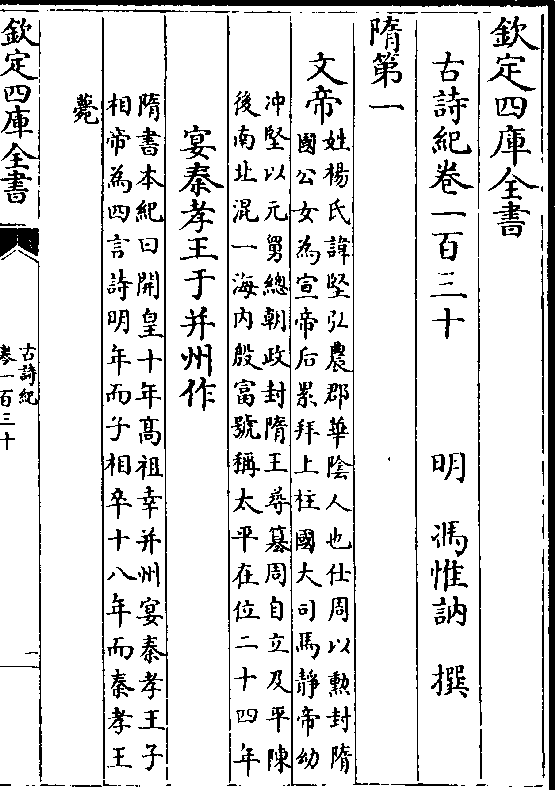 欽定四庫全書
古詩紀卷一百三十　明　馮惟訥　撰
隋第一
文帝
姓楊氏諱堅弘農郡華陰人也仕周以勲封隋
國公女為宣帝后累拜上柱國大司馬靜帝幼
冲堅以元舅總朝政封隋王尋簒周自立及平陳
後南北混一海内殷富號稱太平在位二十四年
宴秦孝王于并州作
隋書本紀曰開皇十年髙祖幸并州宴秦孝王子
相帝為四言詩明年而子相卒十八年而秦孝王
薨
欽定四庫全書
古詩紀
卷一百三十
一